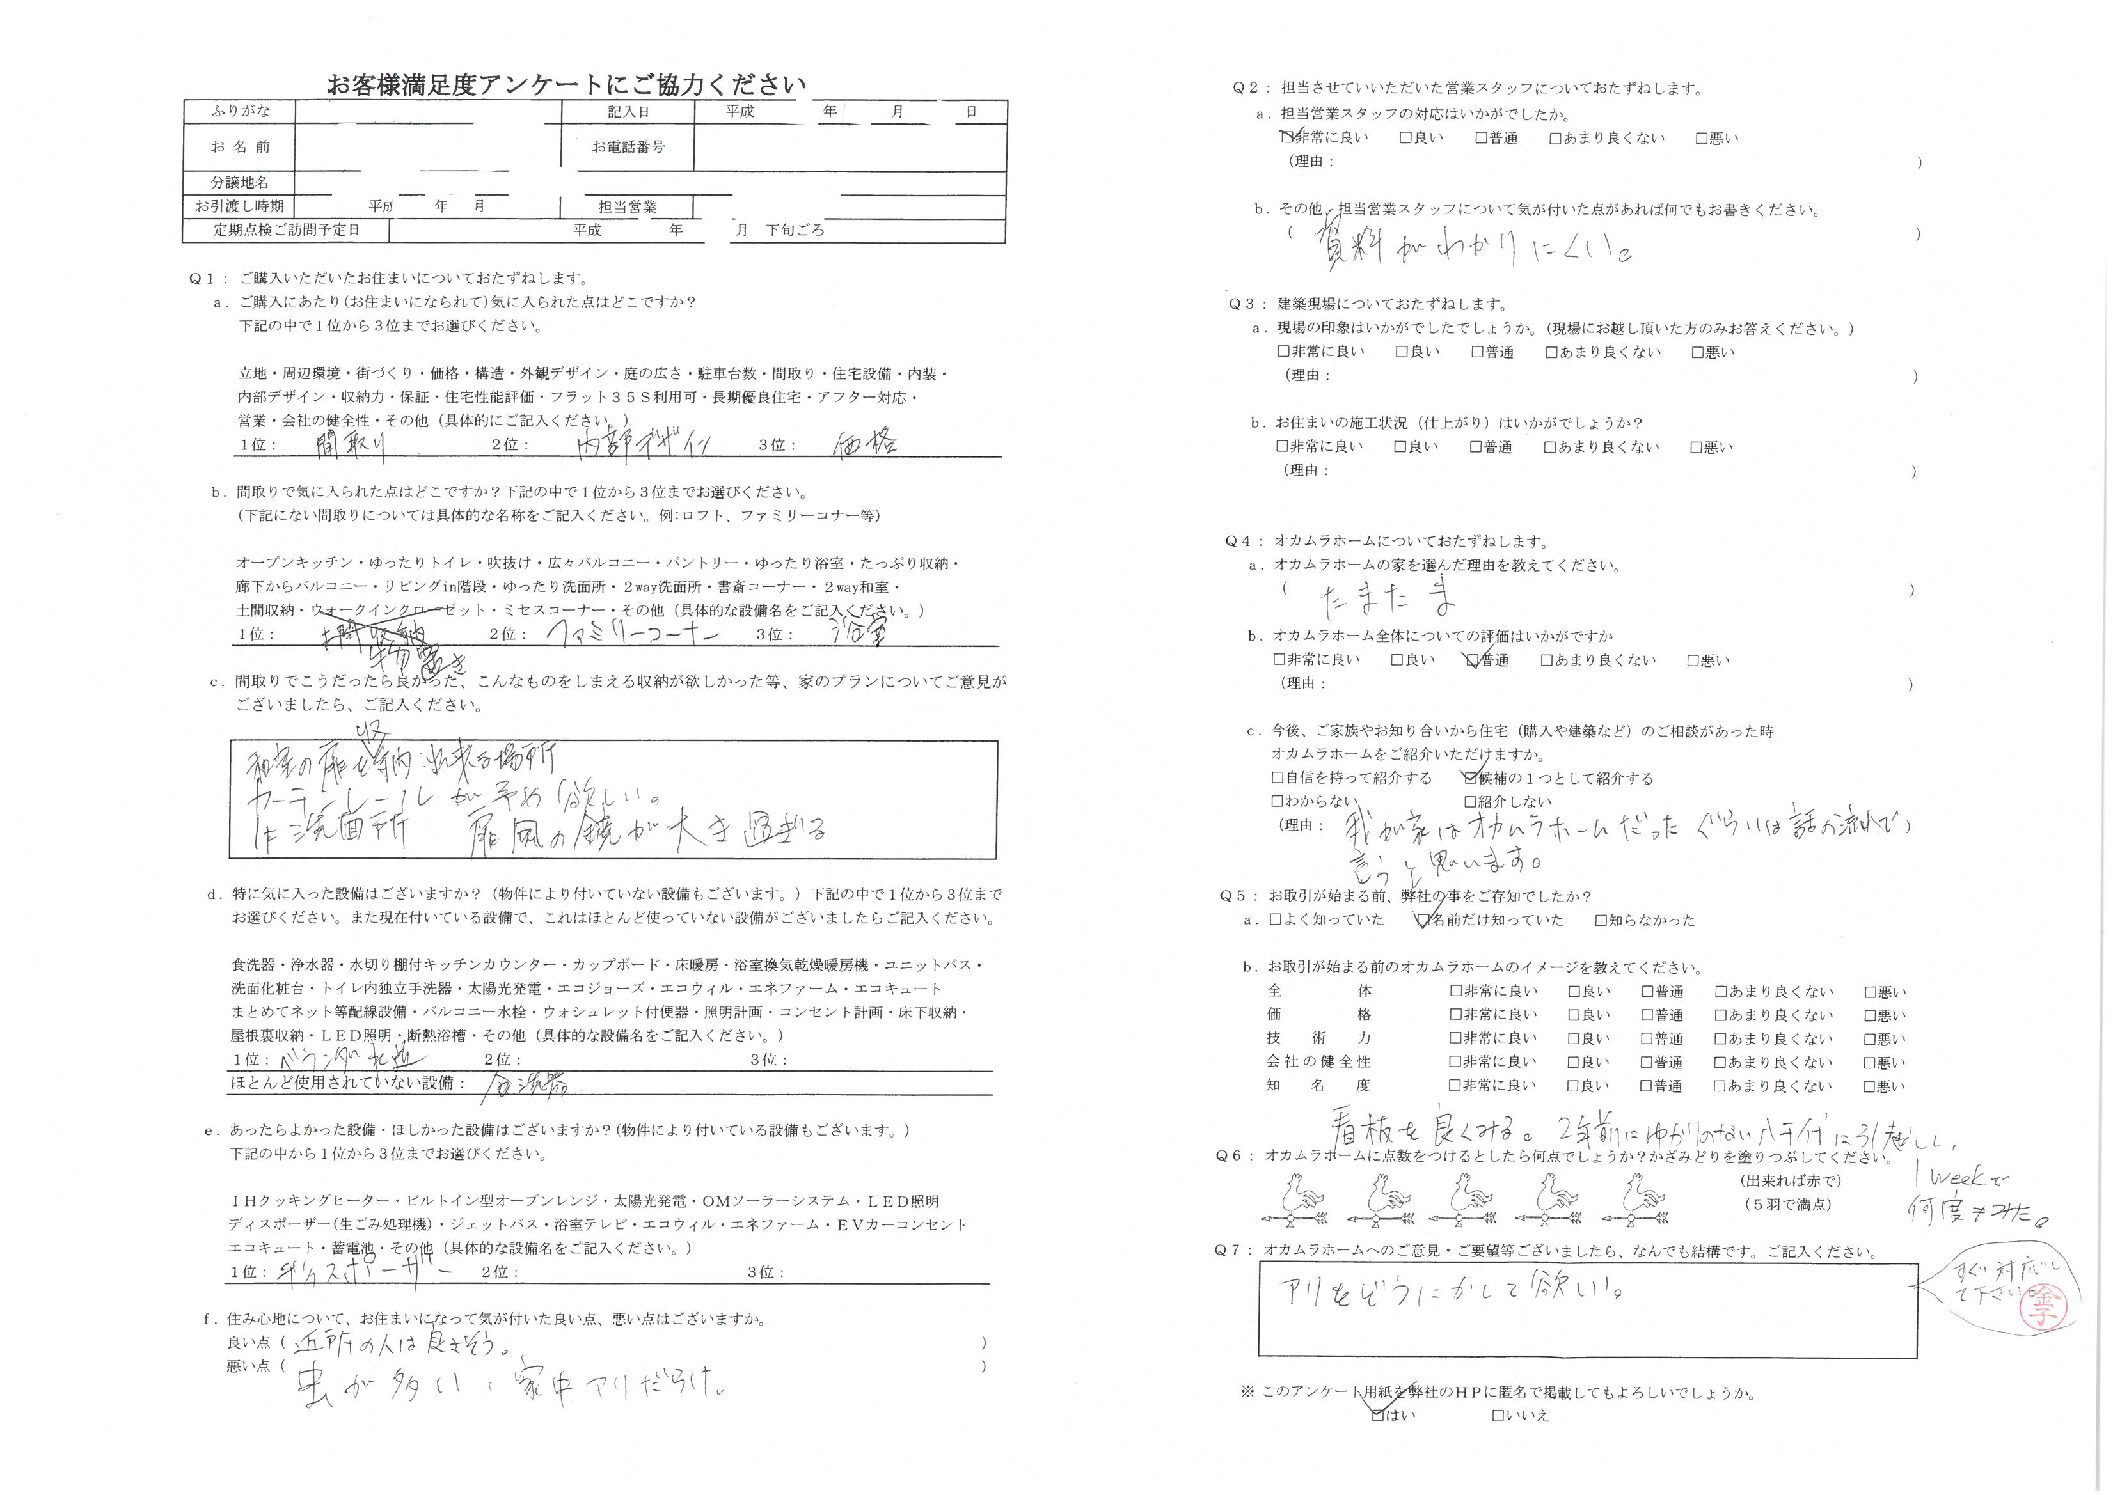 お客様満足度アンケートにご協力ください
ふりがな 記入日 平成 年 月 日
お名前 お電話番号
分譲地名
お引渡し時期 平成 年 月 担当営業
定期点検ご訪問予定日 平成 年 月 下旬ごろ
Q1: ご購入いただいたお住まいについておたずねします。
a. ご購入にあたり(お住まいになられて)気に入られた点はどこですか?
下記の中で1位から3位までお選びください。
立地・周辺環境・街づくり・価格・構造・外観デザイン・庭の広さ・駐車台数・間取り・住宅設備・内装・
内部デザイン・収納力・保証・住宅性能評価・フラット35S利用可・長期優良住宅・アフター対応・
営業・会社の健全性・その他(具体的にご記入ください。)
1位: 間取り 2位: 内部デザイン 3位: 価格
b. 間取りで気に入られた点はどこですか?下記の中で1位から3位までお選びください。
(下記にない間取りについては具体的な名称をご記入ください。例:ロフト、ファミリーコーナー等)
オープンキッチン・ゆったりトイレ・吹抜け・広々バルコニー・パントリー・ゆったり浴室・たっぷり収納・
廊下からバルコニー・リビングin階段・ゆったり洗面所・2way洗面所・書斎コーナー・2way和室・
土間収納・ウォークインクローゼット・ミセスコーナー・その他(具体的な設備名をご記入ください。)
1位: 土間収納 2位: ファミリーコーナー 3位: 浴室
物置き
c. 間取りでこうだったら良かった、こんなものをしまえる収納が欲しかった等、家のプランについてご意見が
ございましたら、ご記入ください。
和室の扉を収納出来る場所
カーテンレールが予め欲しい。
1F洗面所 屏風の鏡が大き過ぎる
d. 特に気に入った設備はございますか?(物件により付いていない設備もございます。)下記の中で1位から3位まで
お選びください。また現在付いている設備で、これはほとんど使っていない設備がございましたらご記入ください。
食洗器・浄水器・水切り棚付キッチンカウンター・カップボード・床暖房・浴室換気乾燥暖房機・ユニットバス・
洗面化粧台・トイレ内独立手洗器・太陽光発電・エコジョーズ・エコウィル・エネファーム・エコキュート
まとめてネット等配線設備・バルコニー水栓・ウォシュレット付便器・照明計画・コンセント計画・床下収納・
屋根裏収納・LED照明・断熱浴槽・その他(具体的な設備名をご記入ください。)
1位: ベランダ水道 2位: 3位:
ほとんど使用されていない設備: 食洗器
e. あったらよかった設備・ほしかった設備はございますか?(物件により付いている設備もございます。)
下記の中から1位から3位までお選びください。
IHクッキングヒーター・ビルトイン型オーブンレンジ・太陽光発電・OMソーラーシステム・LED照明
ディスポーザー(生ごみ処理機)・ジェットバス・浴室テレビ・エコウィル・エネファーム・EVカーコンセント
エコキュート・蓄電池・その他(具体的な設備名をご記入ください。)
1位: ディスポーザー 2位: 3位:
f. 住み心地について、お住まいになって気が付いた良い点、悪い点はございますか。
良い点(近所の人は良さそう。)
悪い点(虫が多い、家中アリだらけ。)
Q2: 担当させていいただいた営業スタッフについておたずねします。
a. 担当営業スタッフの対応はいかがでしたか。
☑非常に良い □良い □普通 □あまり良くない □悪い
(理由: )
b. その他、担当営業スタッフについて気が付いた点があれば何でもお書きください。
(資料がわかりにくい。)
Q3: 建築現場についておたずねします。
a. 現場の印象はいかがでしたでしょうか。(現場にお越し頂いた方のみお答えください。)
□非常に良い □良い □普通 □あまり良くない □悪い
(理由: )
b. お住まいの施工状況(仕上がり)はいかがでしょうか?
□非常に良い □良い □普通 □あまり良くない □悪い
(理由: )
Q4: オカムラホームについておたずねします。
a. オカムラホームの家を選んだ理由を教えてください。
(たまたま)
b. オカムラホーム全体についての評価はいかがですか
□非常に良い □良い ☑普通 □あまり良くない □悪い
(理由: )
c. 今後、ご家族やお知り合いから住宅(購入や建築など)のご相談があった時
オカムラホームをご紹介いただけますか。
□自信を持って紹介する ☑候補の1つとして紹介する
□わからない □紹介しない
(理由: 我が家はオカムラホームだったぐらいは話の流れで)
言うと思います。
Q5: お取引が始まる前、弊社の事をご存知でしたか?
a. □よく知っていた ☑名前だけ知っていた □知らなかった
b. お取引が始まる前のオカムラホームのイメージを教えてください。
全体 □非常に良い □良い □普通 □あまり良くない □悪い
価格 □非常に良い □良い □普通 □あまり良くない □悪い
技術力 □非常に良い □良い □普通 □あまり良くない □悪い
会社の健全性 □非常に良い □良い □普通 □あまり良くない □悪い
知名度 □非常に良い □良い □普通 □あまり良くない □悪い
看板を良くみる。2年前にゆかりのない八千代に引越しし、
1weekで
何度もみた。
Q6: オカムラホームに点数をつけるとしたら何点でしょうか?かざみどりを塗りつぶしてください。
(出来れば赤で)
(5羽で満点)
Q7: オカムラホームへのご意見・ご要望等ございましたら、なんでも結構です。ご記入ください。
アリをどうにかして欲しい。
すぐ対応し
て下さい
金子
※ このアンケート用紙を弊社のHPに匿名で掲載してもよろしいでしょうか。
☑はい □いいえ